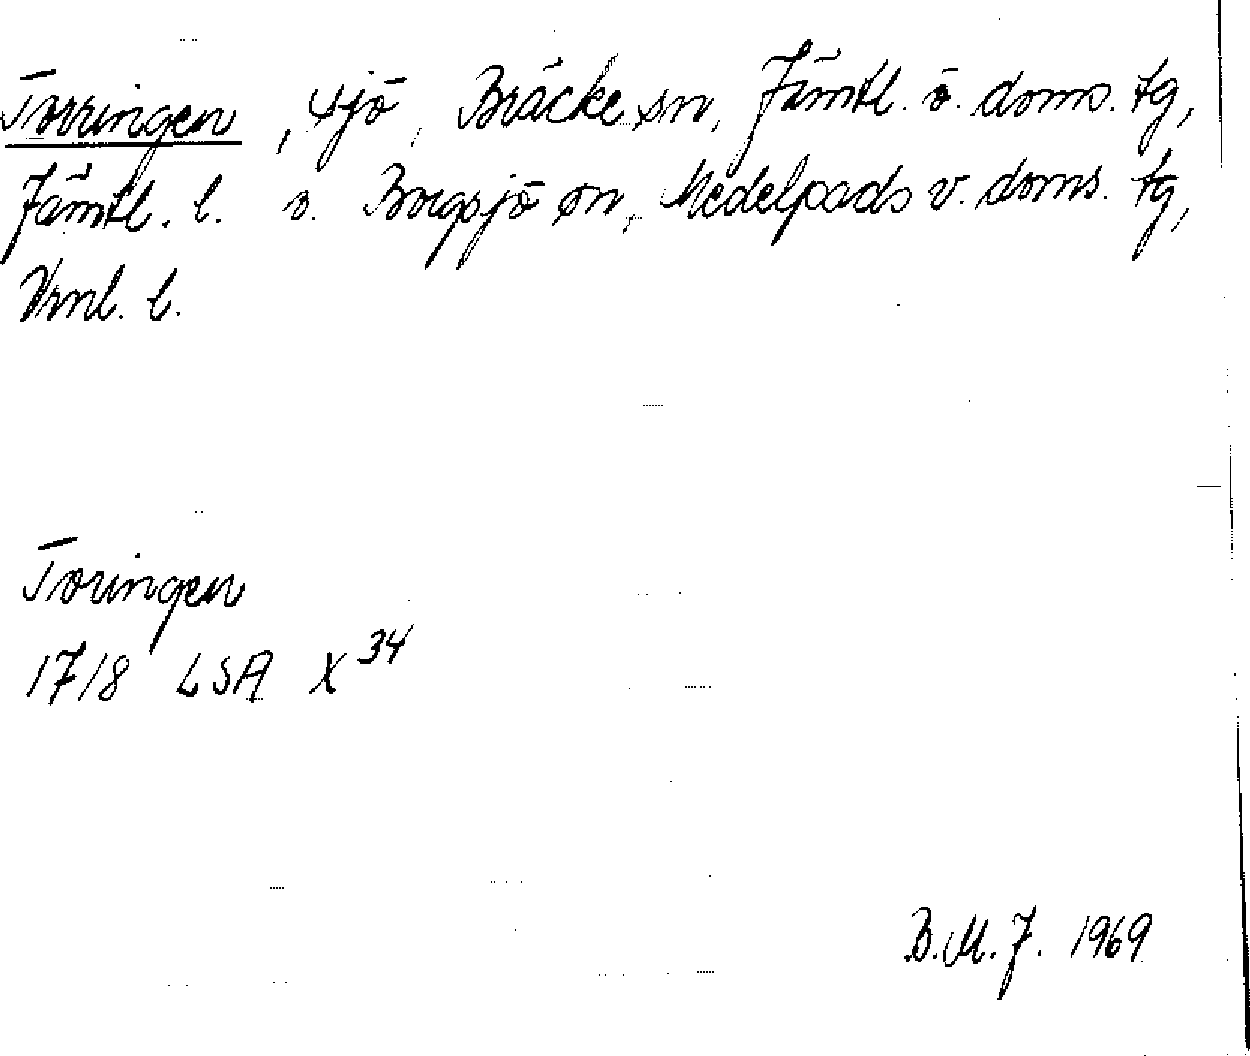 Torringen, sjö, Bräcke sn, Jämtl. ö. doms. tg,
Jämtl. l. o. Borgsjö sn, Medelpads v. doms. tg,
Vrnl. l.
Toringen
1718 LSA X34
B.M.J. 1969